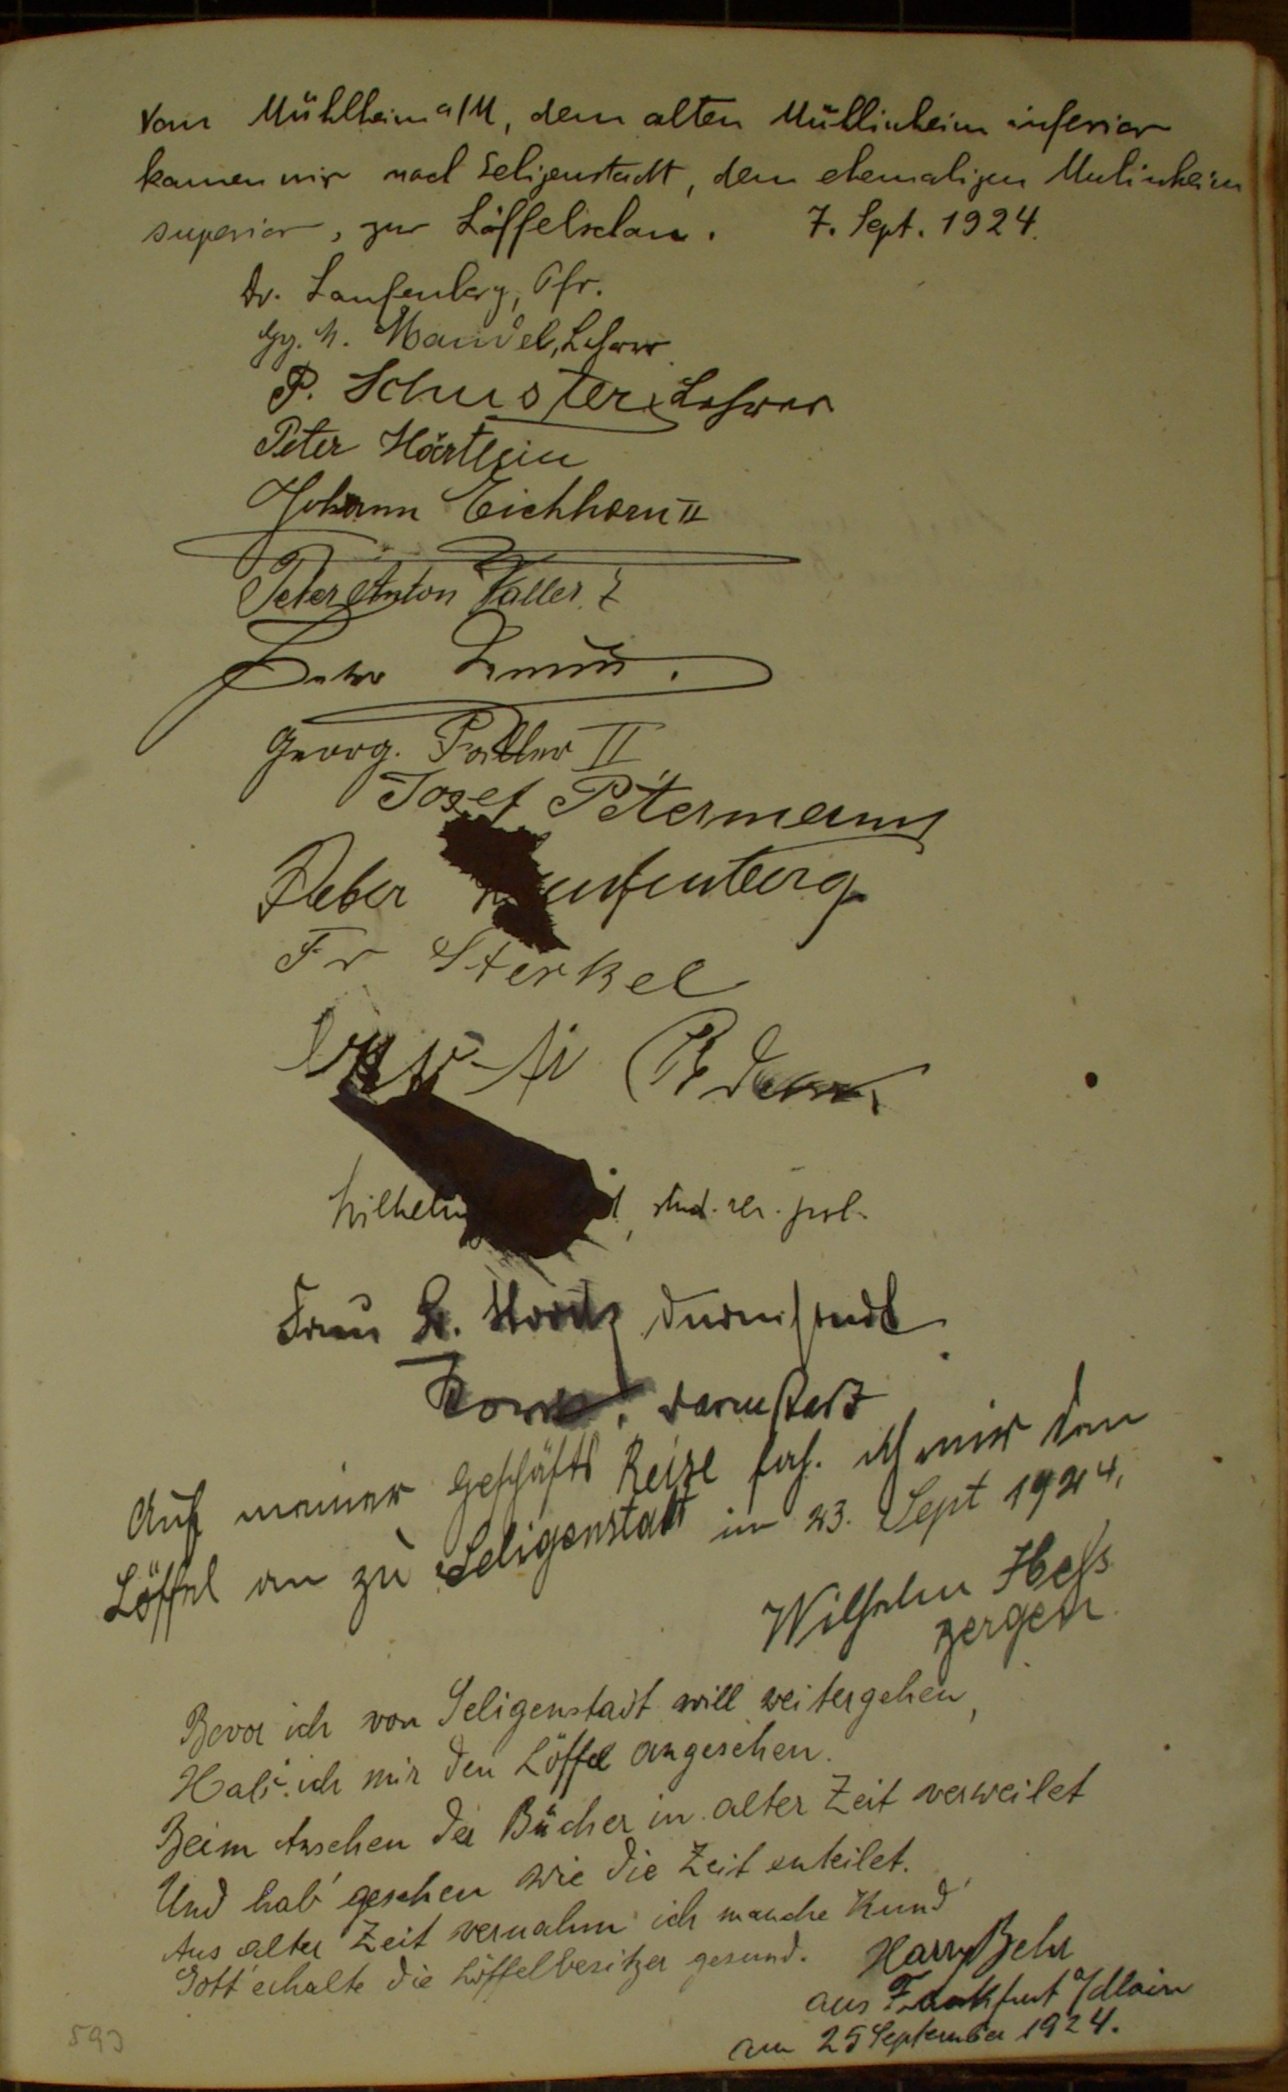 Vom Mühlheim a/M, dem alten Mühlinheim inferior
kamen wir nach Seligenstadt, dem ehemaligen Mulinheim
superior, zur Löffelschau. 7. Sept. 1924.
Dr. Laufenberg, Pfr.
Gg. M. Mandel, Lehrer
P. Schuster, Lehrer
Peter Härtlein
Johann Eichhorn II
Peter Anton
Peter
Georg. II
Josef Petermann
Peter
Fr Sterkel
stud. rer. pol.
Frau Darmstadt
Darmstadt
Auf meiner Geschäfts Reise sah ich mir den
Löffel an zu Seligenstadt im 23. Sept 1924.
Wilhelm Hess
Bevor ich von Seligenstadt will weitergehen,
Hab' ich mir den Löffel angesehen.
Beim Ansehen der Bücher in alter Zeit verweilet
Und hab' gesehen wie die Zeit enteilet.
Aus alter Zeit vernahm ich manche Kund'
Gott erhalte die Löffelbesitzer gesund.
Harry Behr
aus Frankfurt a/Main
am 25 September 1924.
593